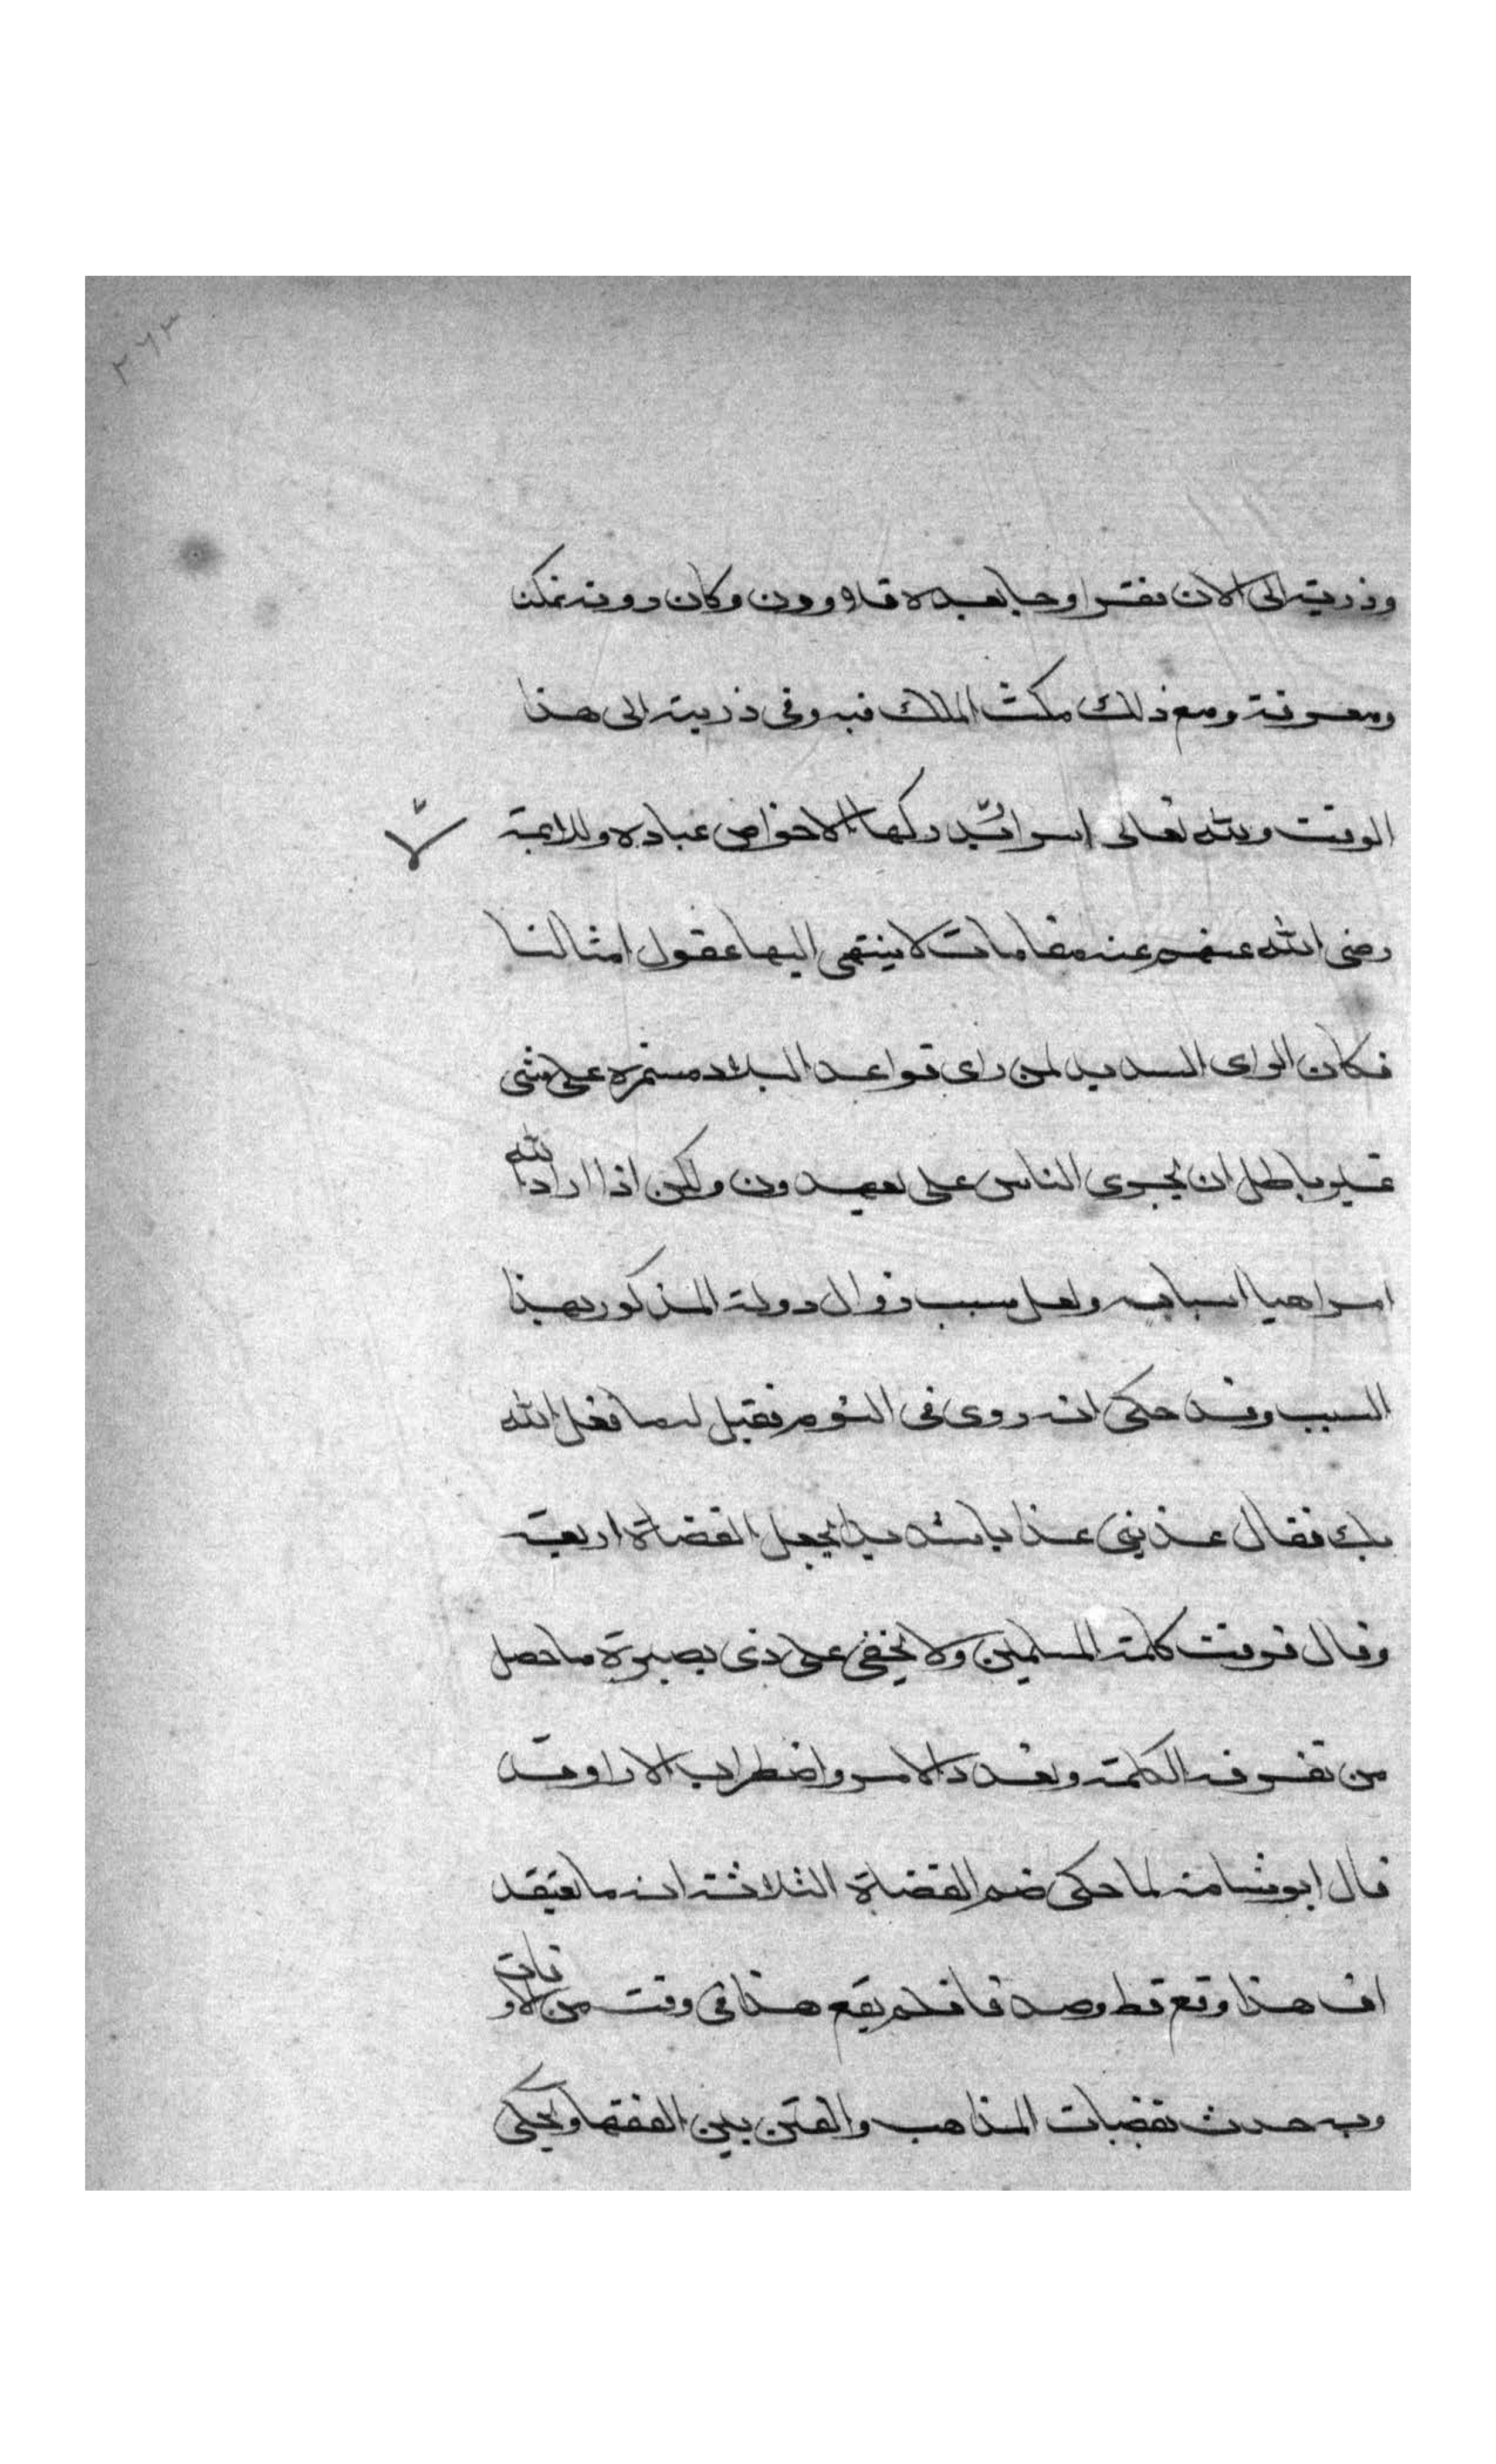 ٢٦٣
وذريته الى الان فقرا وجا بعده قلاوون وكان دونه تمكنا
ومعرفة ومع ذلك مكث الملك فيه وفى ذريته الى هذا
الوقت ولله تعالى اسرار لا يدركها الا خواص عباده وللايمة
رضى الله عنهم عنده مقامات لا ينتهى اليها عقول امثالنا
فكان الراى السديد لمن راى قواعد البلاد مستمرة على شى
غير باطل ان يجرى الناس على يعهدون ولكن اذا اراد الله
امرا هيا اسبابه ولعل سبب زوال دولة المذكور بهذا
السبب وقد حكى انه روى فى النوم فقيل له ما فعل الله
بك فقال عذبنى عذابا شديدا بجعل القضاة اربعة
وقال فرقت كلمة المسلمين ولا يخفى على ذى بصيرة ما حصل
من تفرقة الكلمة وتعدد الامر واضطراب الارا وقد
قال ابو شامة لما حكى ضم القضاة الثلاثة انه ما يعتقد
ان هذا وقع قط وصدق فلم يقع هذا فى وقت من الاوقات
وبه حدث تعصبات المذاهب والفتن بين الفقها ويحكى